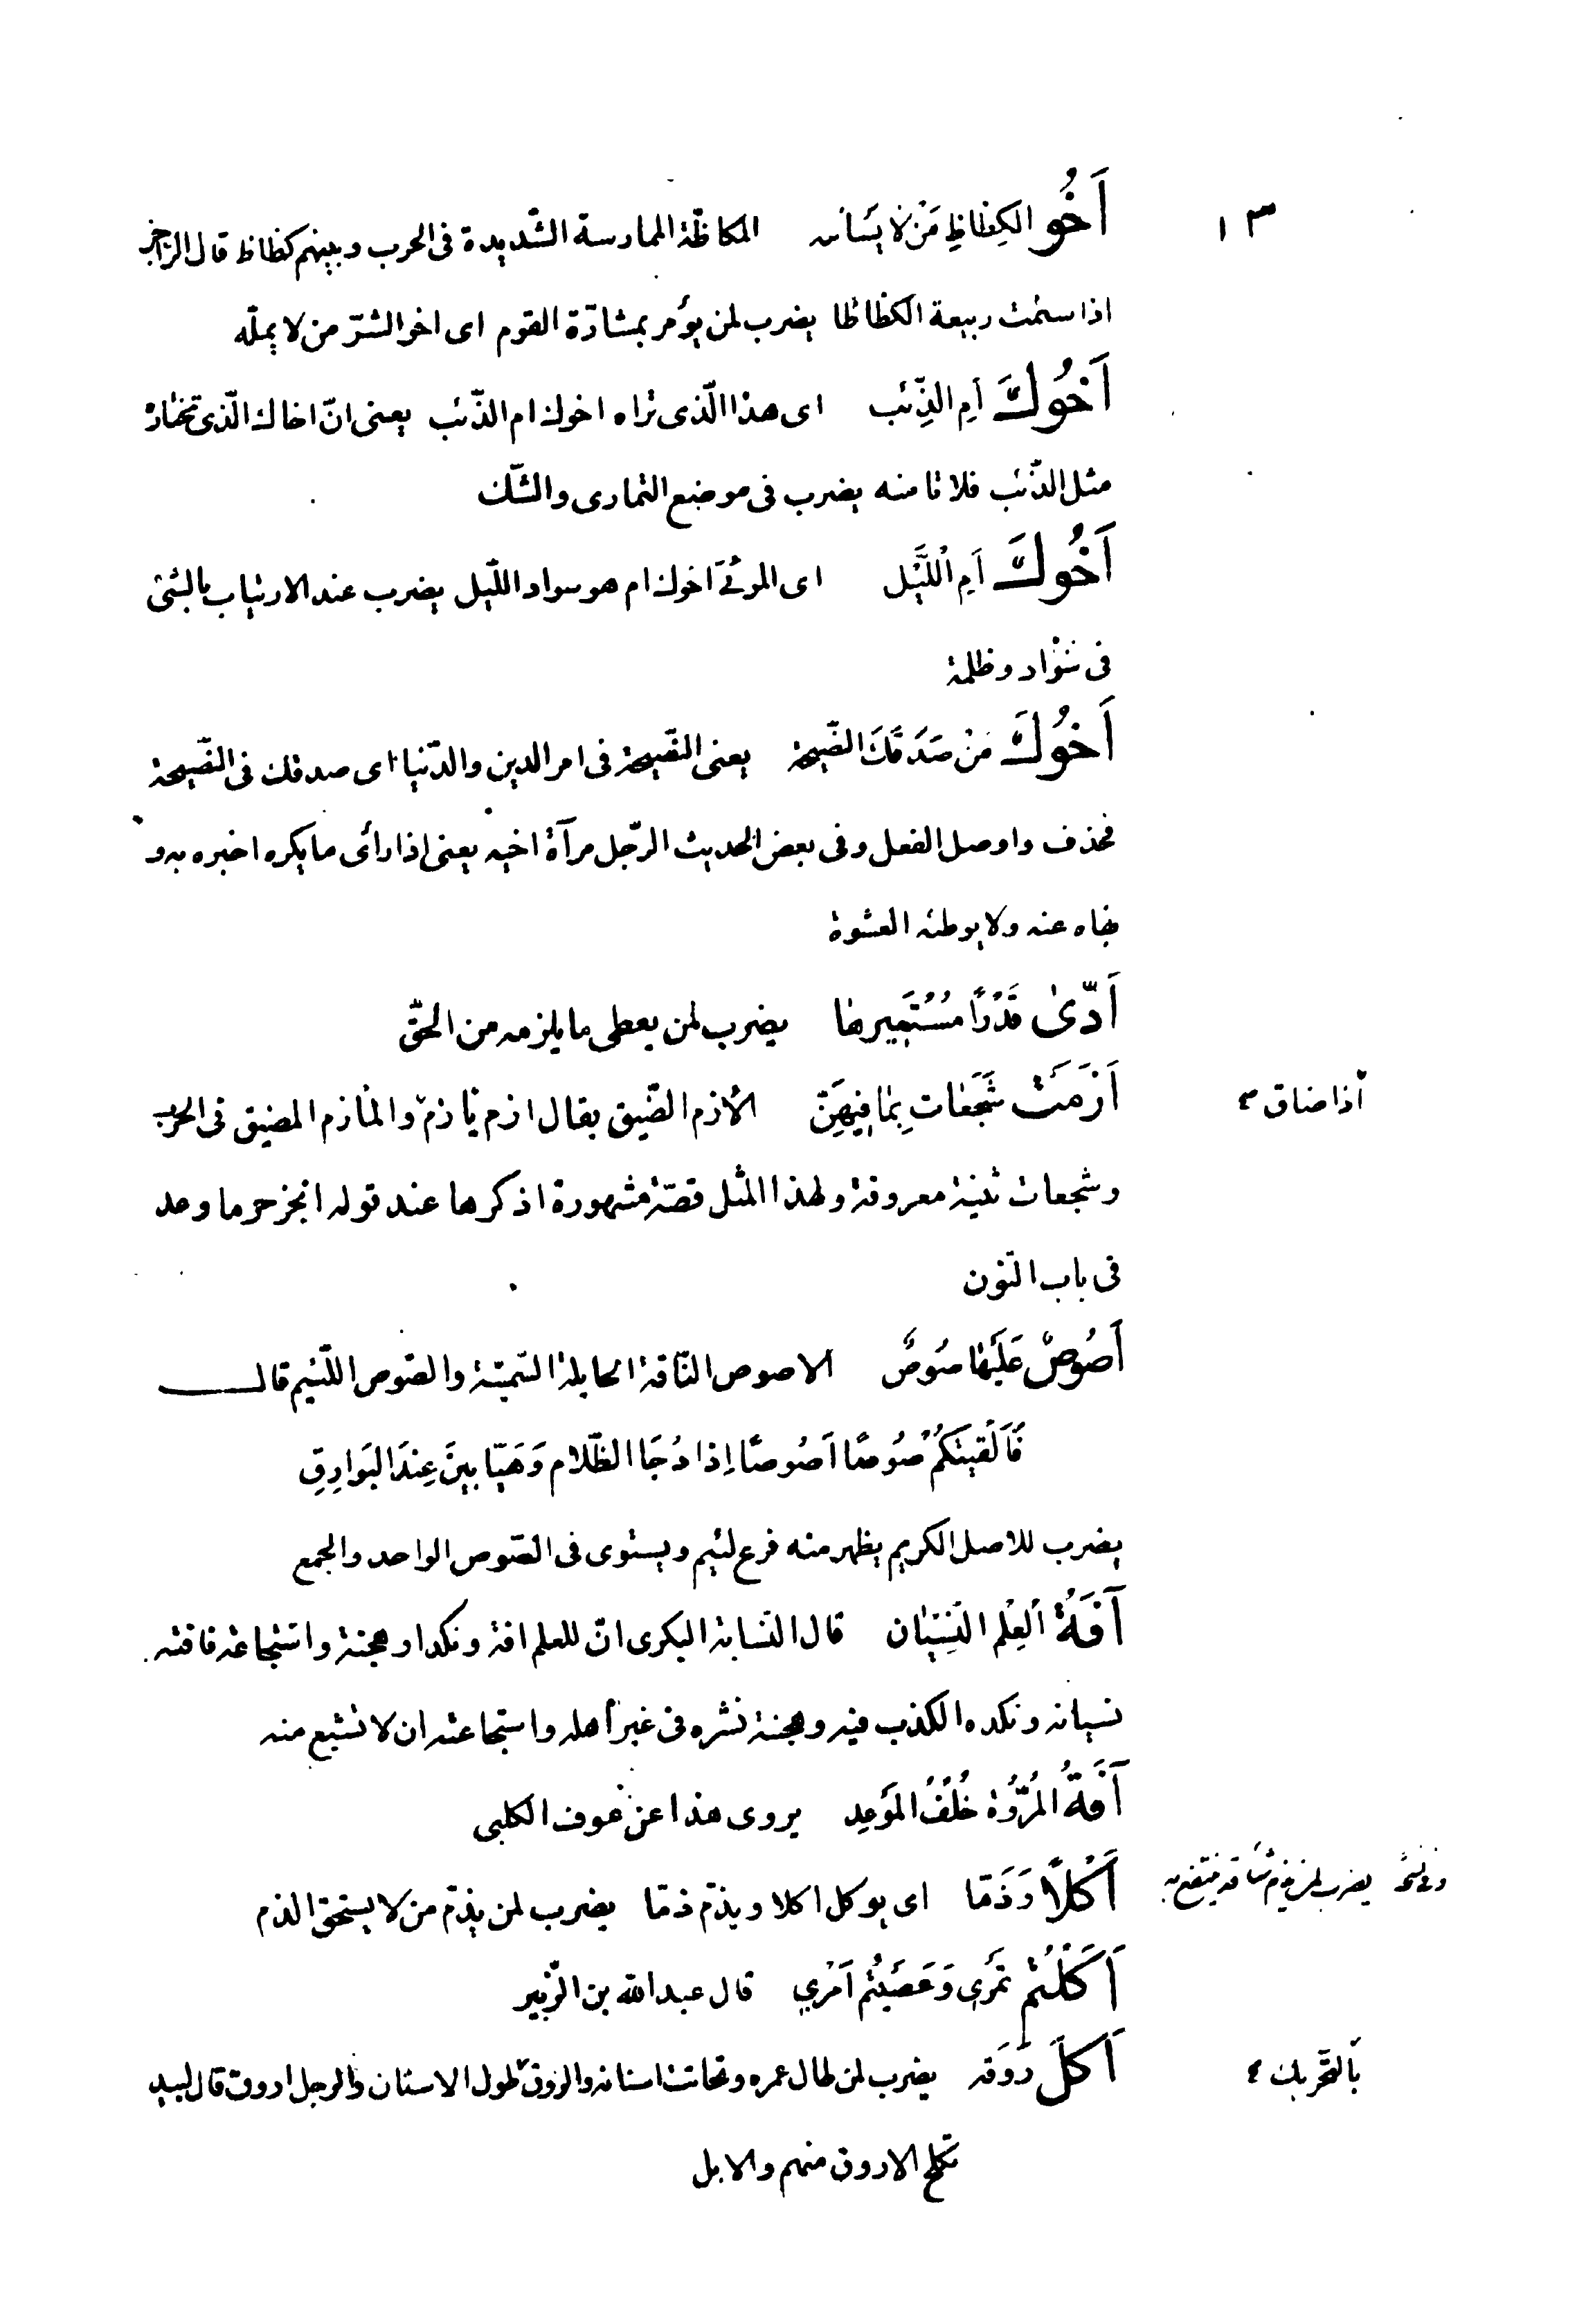 ١٣
أَخُو الكِظاظِ مَنْ لا يَسْأمه المكاظّة الممارسة الشّديدة فى الحرب وبينهم كظاظ قال الراجز
اذا سئمت ربيعة الكظاظا يضرب لمن يؤمر بمشارّة القوم اى اخو الشرّ من لا يملّه
أَخُوكَ أمِ الذِّئب اى هذا الّذى تراه اخوك ام الذّئب يعنى انّ اخاك الّذى تختاره
مثل الذّئب فلا تامنه يضرب فى موضع التمارى والشّك
أَخُوكَ أمِ اللَّيْل اى المرئىّ اخوك ام هو سواد اللّيل يضرب عند الارتياب بالشئ
فى سواد وظلمة
أَخُوكَ مَنْ صَدَقَكَ النّصيحة يعنى النّصيحة فى امر الدين والدّنيا اى صدقك فى النّصيحة
فحذف واوصل الفعل وفى بعض الحديث الرّجل مرآة اخيه يعنى اذا رأى ما يكره اخبره به و
نهاه عنه ولا يوطئه العشوة
أدّى قَدْرًا مُسْتَعِيرها يضرب لمن يعطى ما يلزمه من الحقّ
أَزَمَتْ شَجَعَات بِمَا فِيهِنّ الأزم الضّيق يقال ازم يأزم والمأزم المضيق فى الحرب
اذا ضاق
وشجعات ثنية معروفة ولهذا المثل قصّة مشهورة اذكرها عند قوله انجز حر ما وعد
فى باب النّون
أَصُوصٌ عَلَيْهَا صُوصٌ الاصوص النّاقة الحايلة السّمينة والصّوص اللّئيم قال
فَأَلْفَيْتكُمْ صُوصًا اَصُوصًا إذا دُجَا الظّلام وَهَيّابِينَ عِندَ البَوارِقِ
يضرب للاصل الكريم يظهر منه فرع لئيم ويستوى فى الصّوص الواحد والجمع
آفَةُ العِلْم النِّسْيَان قال النّسابة البكرى انّ للعلم افة ونكدا وهجنة واستجاعة فافته
نسيانه ونكده الكذب فيه وهجنة نشره فى غير أهله واستجاعته ان لا تشبع منه
آفَةُ المُرُوّة خُلْفُ المَوْعِد يروى هذا عن عوف الكلبى
أَكْلاً وَذَمّا اى يوكل اكلا ويذمّ ذمّا يضرب لمن يذمّ من لا يستحق الذم
أَكَلْتُمْ تَمْرِى وَعَصَيْتُم اَمْرِي قال عبد الله بن الزّبير
أَكَلَ رَوْقه يضرب لمن طال عمره وتحاتت اسنانه والروق طول الاسنان والرجل اروق قال لبيد
بالتّحريك
تكلح الاروق منهم والابل